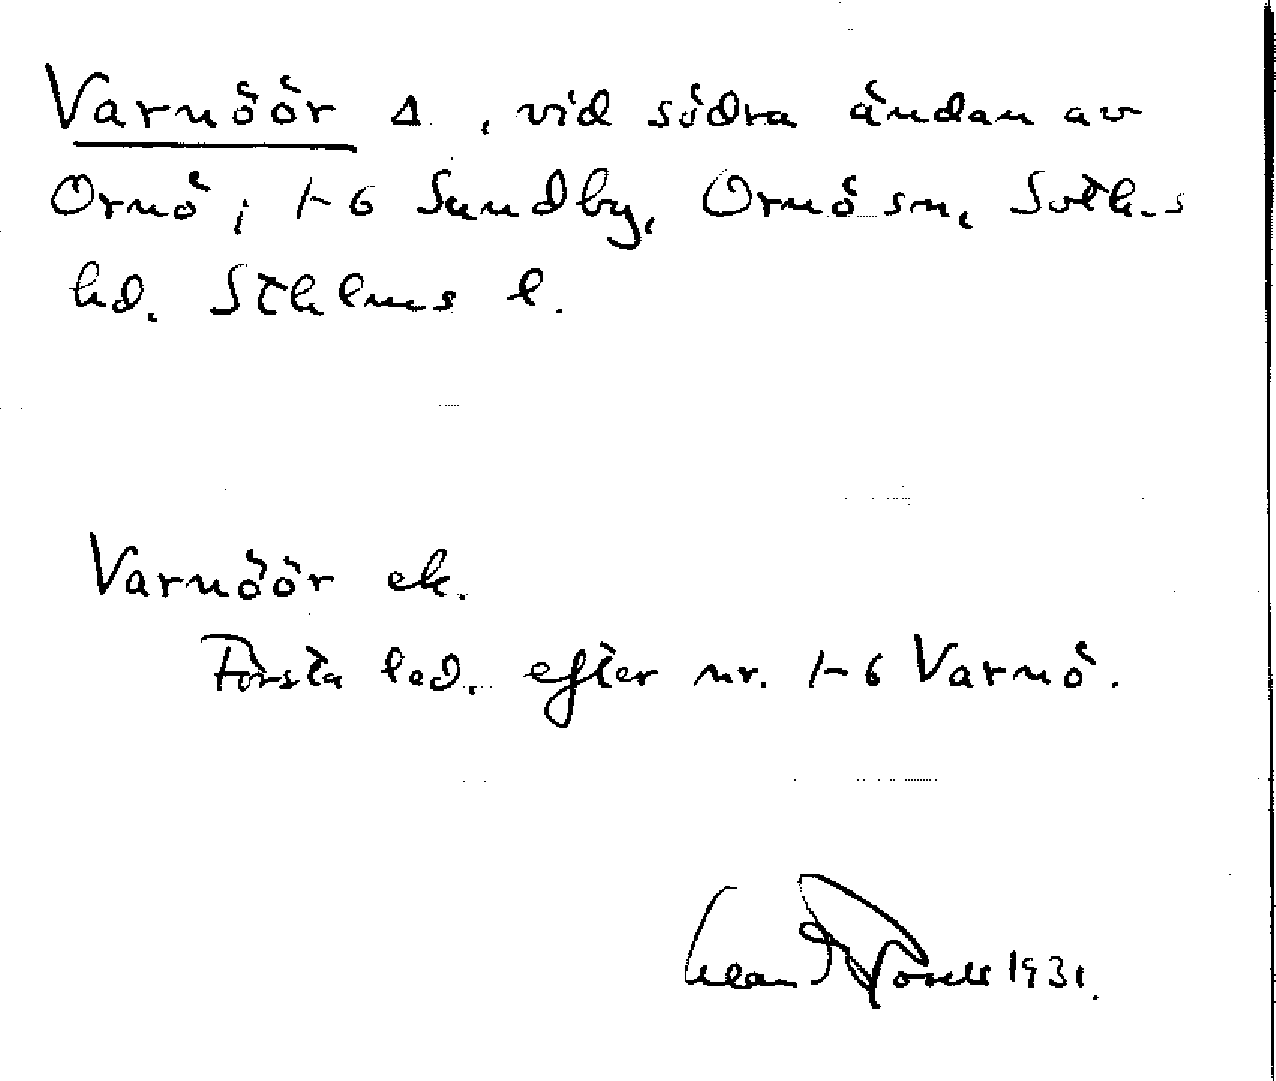 Varnöör Δ., vid södra ändan av
Ornö, 1-6 Sundby, Ornö sn, Sothl.s
hd. Sthlms l.
Varnöör ek.
Första led. efter nr. 1-6 Varnö.
1931.